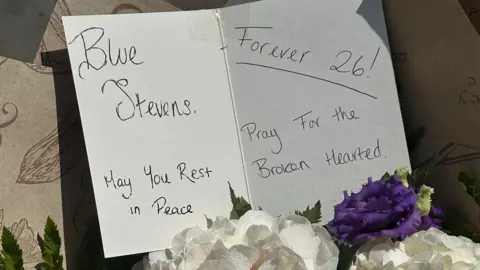 Blue
Stevens.
May You Rest
in Peace
Forever 26!
Pray For the
Broken Hearted.